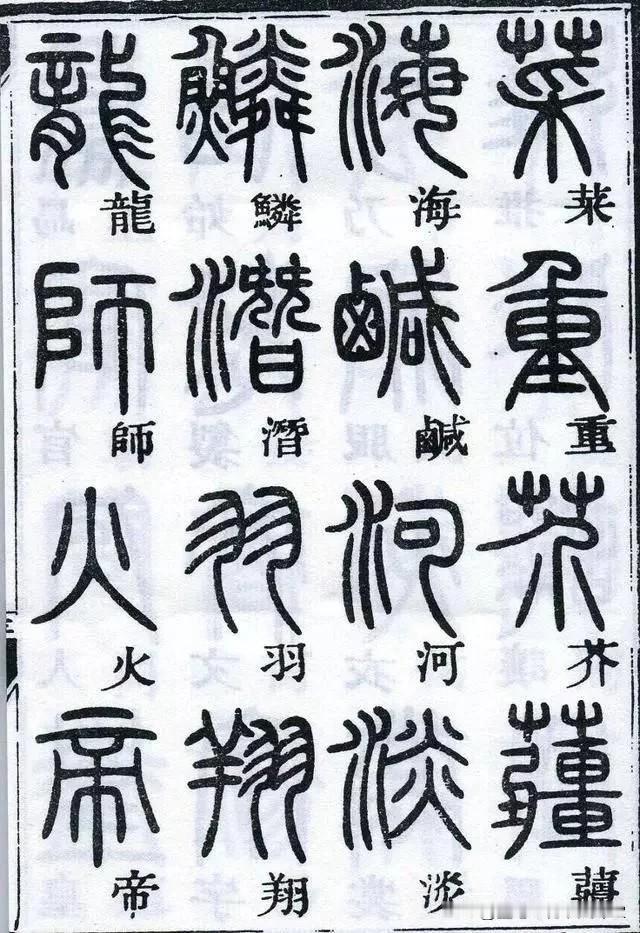 菜重芥薑
海鹹河淡
鱗潛羽翔
龍師火帝